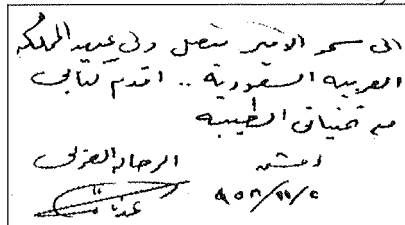 الى سمو الامير فيصل ولي عهد المملكه
العربيه السعودية .. اقدم كتابي
مع تمنياتي الطيبه
دمشق الرحاله العربي
عدنان